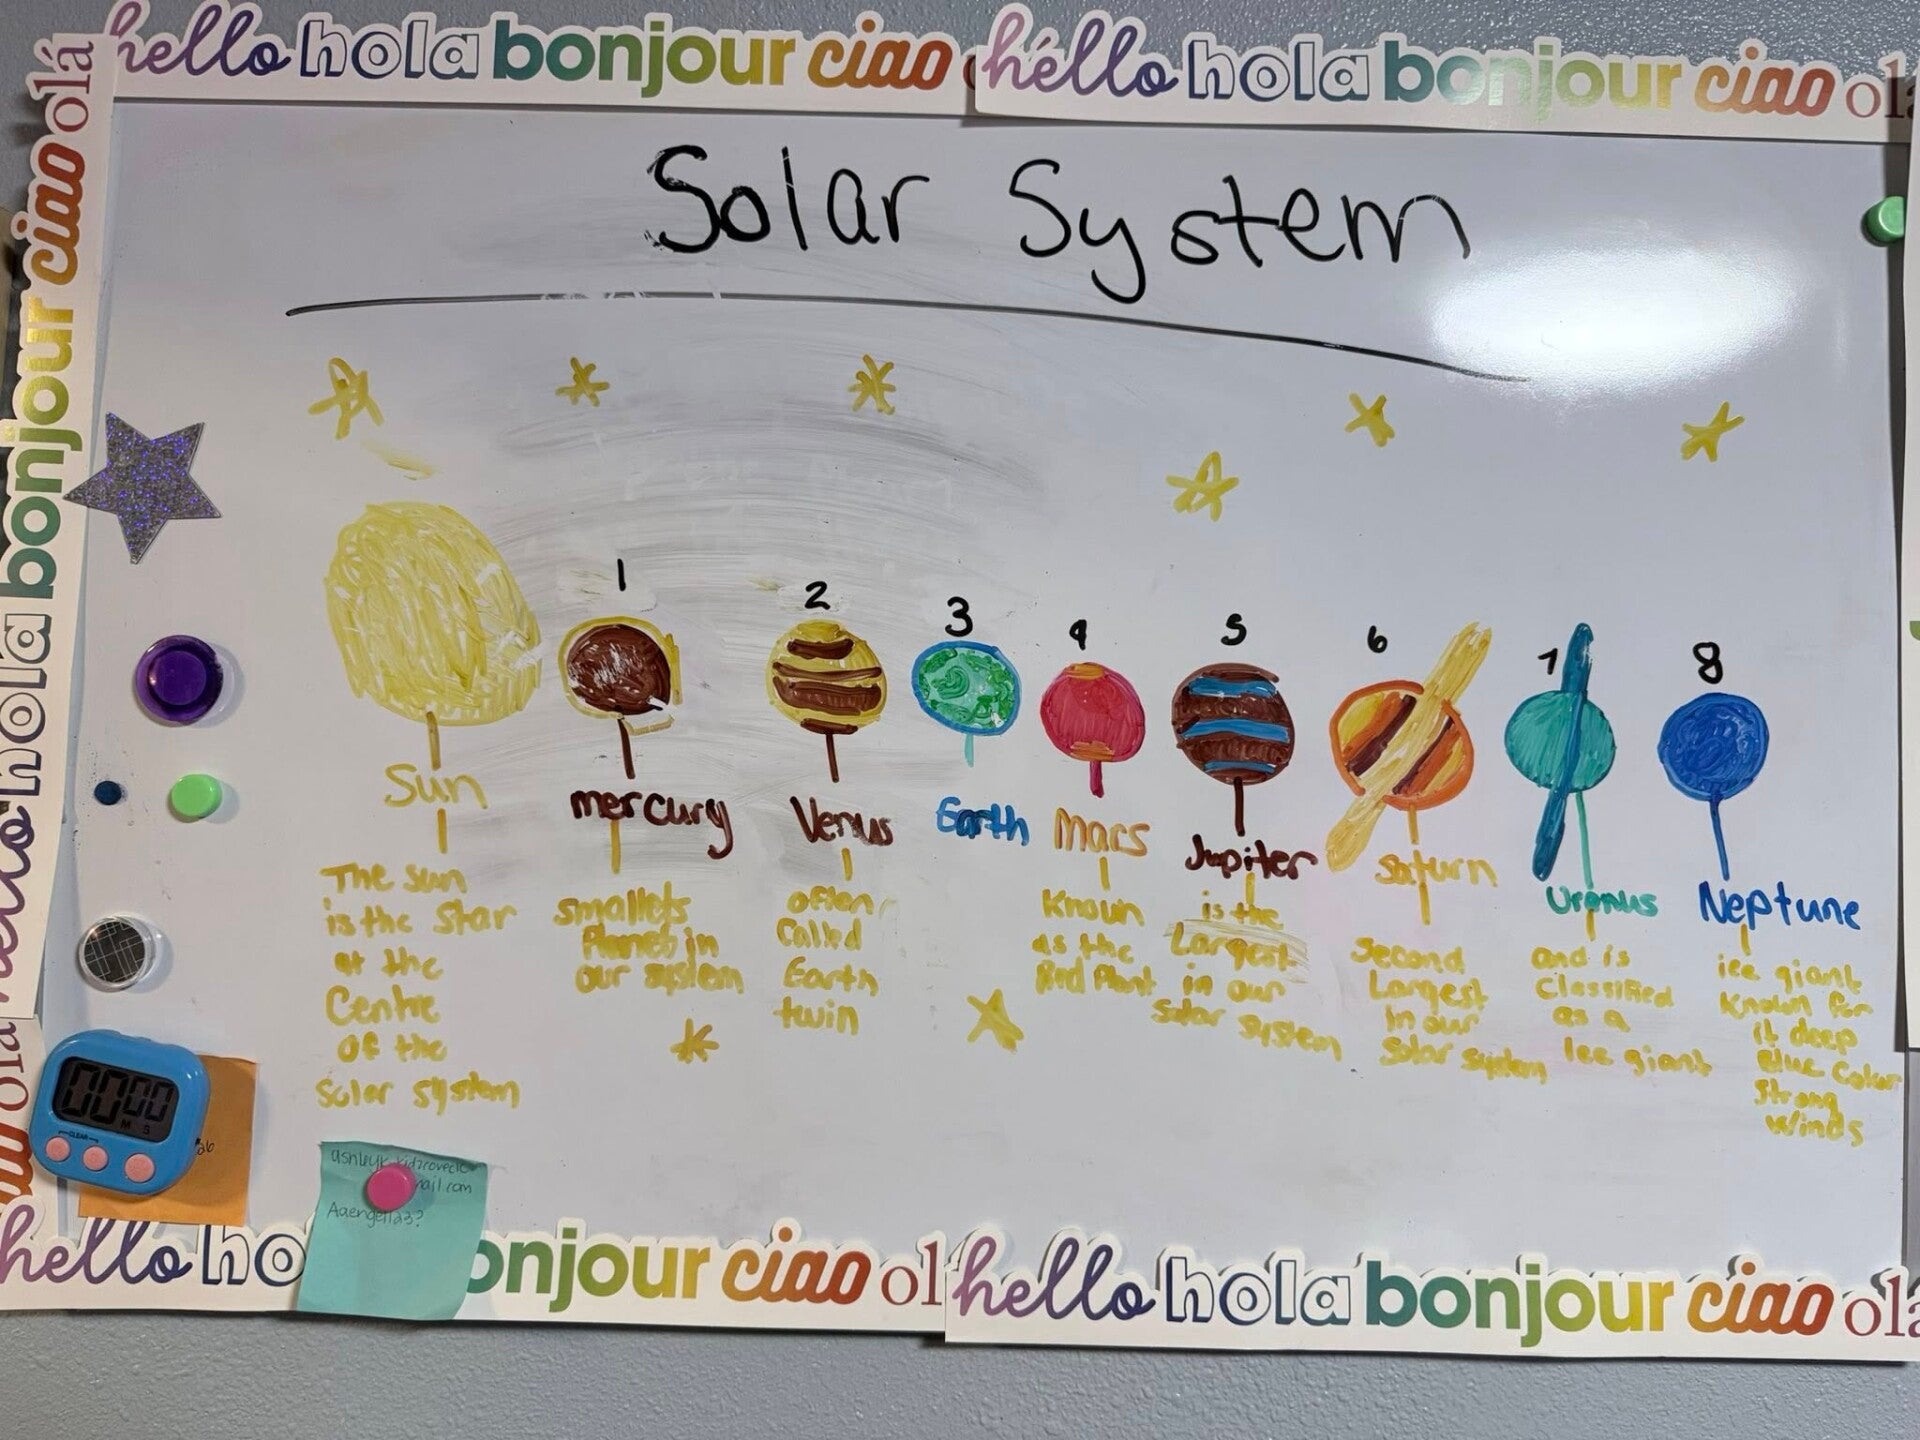 hello hola bonjour ciao
hello hola bonjour ciao olá
hello hola bonjour ciao olá
Solar System
1
2
3
4
5
6
7
8
Sun
mercury
Venus
Earth
Mars
Jupiter
Saturn
Uranus
Neptune
The sun
is the star
at the
Centre
of the
Solar system
smallets
Planet in
our system
often
Called
Earth
twin
Known
as the
Red Plant
is the
Largest
in our
Solar system
second
Largest
in our
Solar system
and is
Classified
as a
Ice giant
ice giant
Known for
it deep
Blue Color
Strong
Winds
00 00
M S
CLEAR
hello ho onjour ciao ol
hello hola bonjour ciao olá